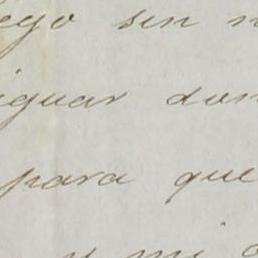 ego sin n
iguar don
para que
y mi